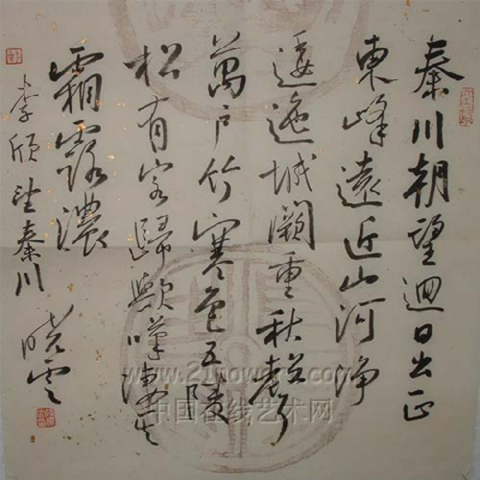 秦川朝望迴日出正
東峰遠近山河淨
逶迤城闕重秋聲
萬戶竹寒色五陵
松有客歸歟嘆淒其
霜露濃
李頎望秦川
曉雲
中国在线艺术网